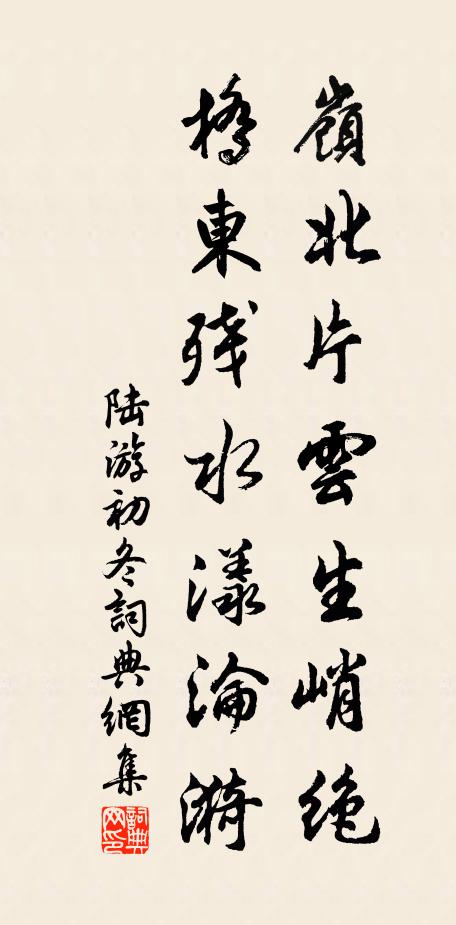 嶺北片雲生峭絶
橋東殘水漾淪漪
陸游初冬詞典網集
詞典网印